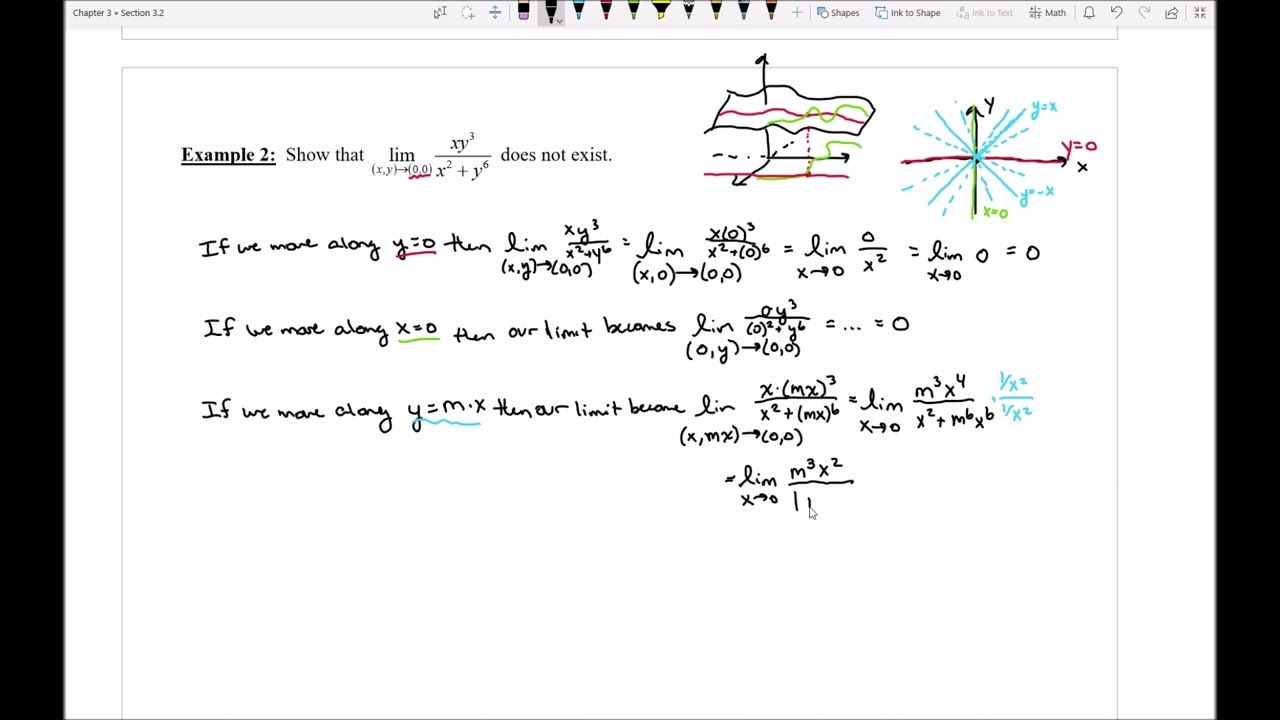 Chapter 3 » Section 3.2
Shapes Ink to Shape Ink to Text Math
Example 2: Show that lim (x,y)→(0,0) xy³/(x² + y⁶) does not exist.
y
x
y=x
y=0
y=-x
x=0
If we move along y=0 then lim (x,y)→(0,0) xy³/(x²+y⁶) = lim (x,0)→(0,0) x(0)³/(x²+(0)⁶) = lim x→0 0/x² = lim x→0 0 = 0
If we move along x=0 then our limit becomes lim (0,y)→(0,0) 0y³/((0)²+y⁶) = ... = 0
If we move along y=m·x then our limit become lim (x,mx)→(0,0) x·(mx)³/(x²+(mx)⁶) = lim x→0 m³x⁴/(x²+m⁶x⁶) · (1/x²)/(1/x²)
= lim x→0 m³x²/1